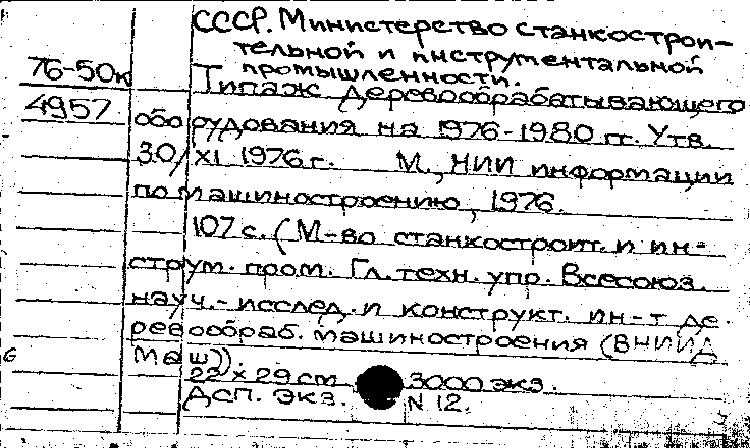 СССР. Министерство станкострои-
тельной и инструментальной
промышленности.
76-50к
Типаж деревообрабатывающего
4957
оборудования на 1976-1980 гг. Утв.
30/XI 1976 г. М., НИИ информации
по машиностроению, 1976.
107 с. (М-во станкостроит. и ин-
струм. пром. Гл. техн. упр. Всесоюз.
науч.-исслед. и конструкт. ин-т де-
ревообраб. машиностроения (ВНИИД
маш))
22 × 29 см 3000 экз.
ДСП. экз. N 12.
6